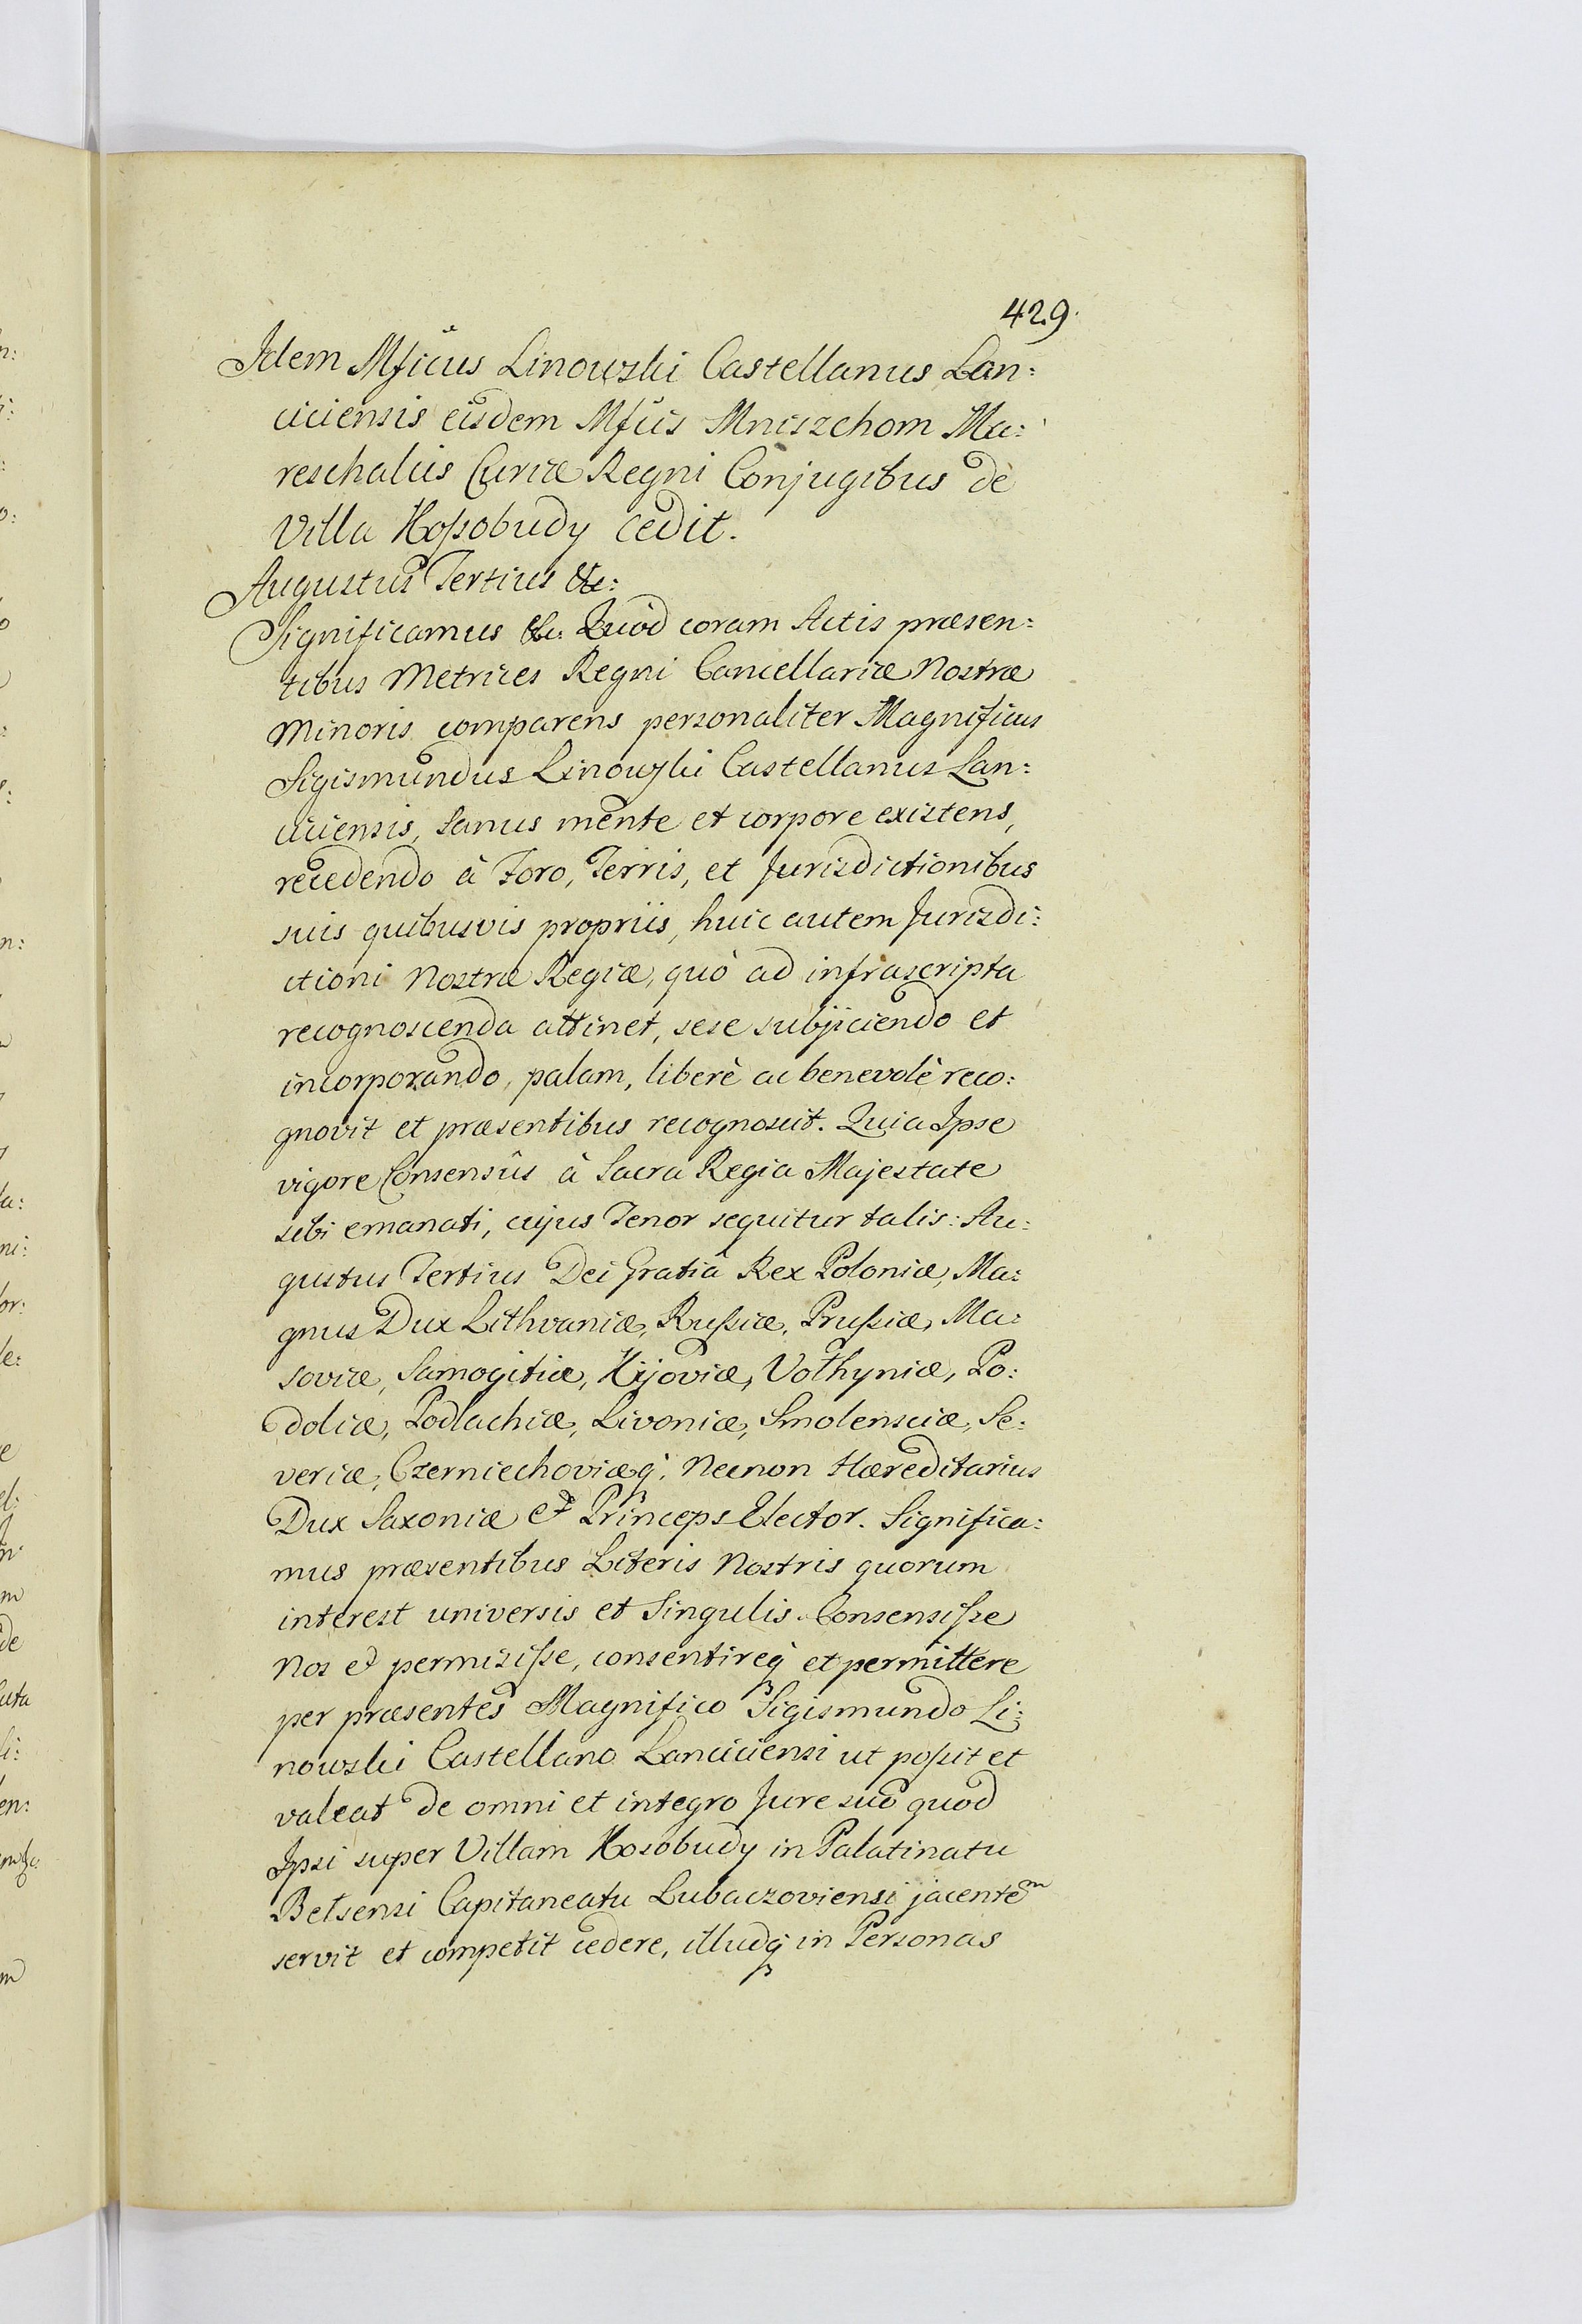 429.
Idem Mficus Linowski Castellanus Lan:
ciciensis eisdem Mfcis Mniszchom Ma:
reschalcis Curiæ Regni Conjugibus de
Villa Kossobudy cedit.
Augustus Tertius &c:
Significamus &c. Quòd coram Actis præsen:
tibus Metrices Regni Cancellariæ Nostræ
Minoris comparens personaliter Magnificus
Sigismundus Linowski Castellanus Lan:
ciciensis, sanus mente et corpore existens,
recedendo à Foro, Terris, et Jurisdictionibus
suis quibusvis propriis, huic autem Jurisdi:
ctioni Nostræ Regiæ, quò ad infrascripta
recognoscenda attinet, sese subjiciendo et
incorporando, palam, liberè ac benevolè reco:
gnovit et præsentibus recognoscit. Quia Ipse
vigore Consensûs à Sacra Regia Majestate
sibi emanati, cujus Tenor sequitur talis: Au:
gustus Tertius Dei Gratiâ Rex Poloniæ, Ma:
gnus Dux Lithvaniæ, Russiæ, Prussiæ, Ma:
soviæ, Samogitiæ, Kijoviæ, Volhyniæ, Po:
doliæ, Podlachiæ, Livoniæ, Smolensciæ, Se:
veriæ, Czerniechoviæq. Necnon Hæreditarius
Dux Saxoniæ et Princeps Elector. Significa:
mus præsentibus Literis Nostris quorum
interest universis et Singulis. Consensisse
Nos et permisisse, consentireq et permittere
per præsentes Magnifico Sigismundo Li:
nowski Castellano Lanciciensi ut possit et
valeat de omni et integro Jure suo quod
Ipsi super Villam Kosobudy in Palatinatu
Belsensi Capitaneatu Lubaczoviensi jacentem
servit et competit cedere, illudq in Personas